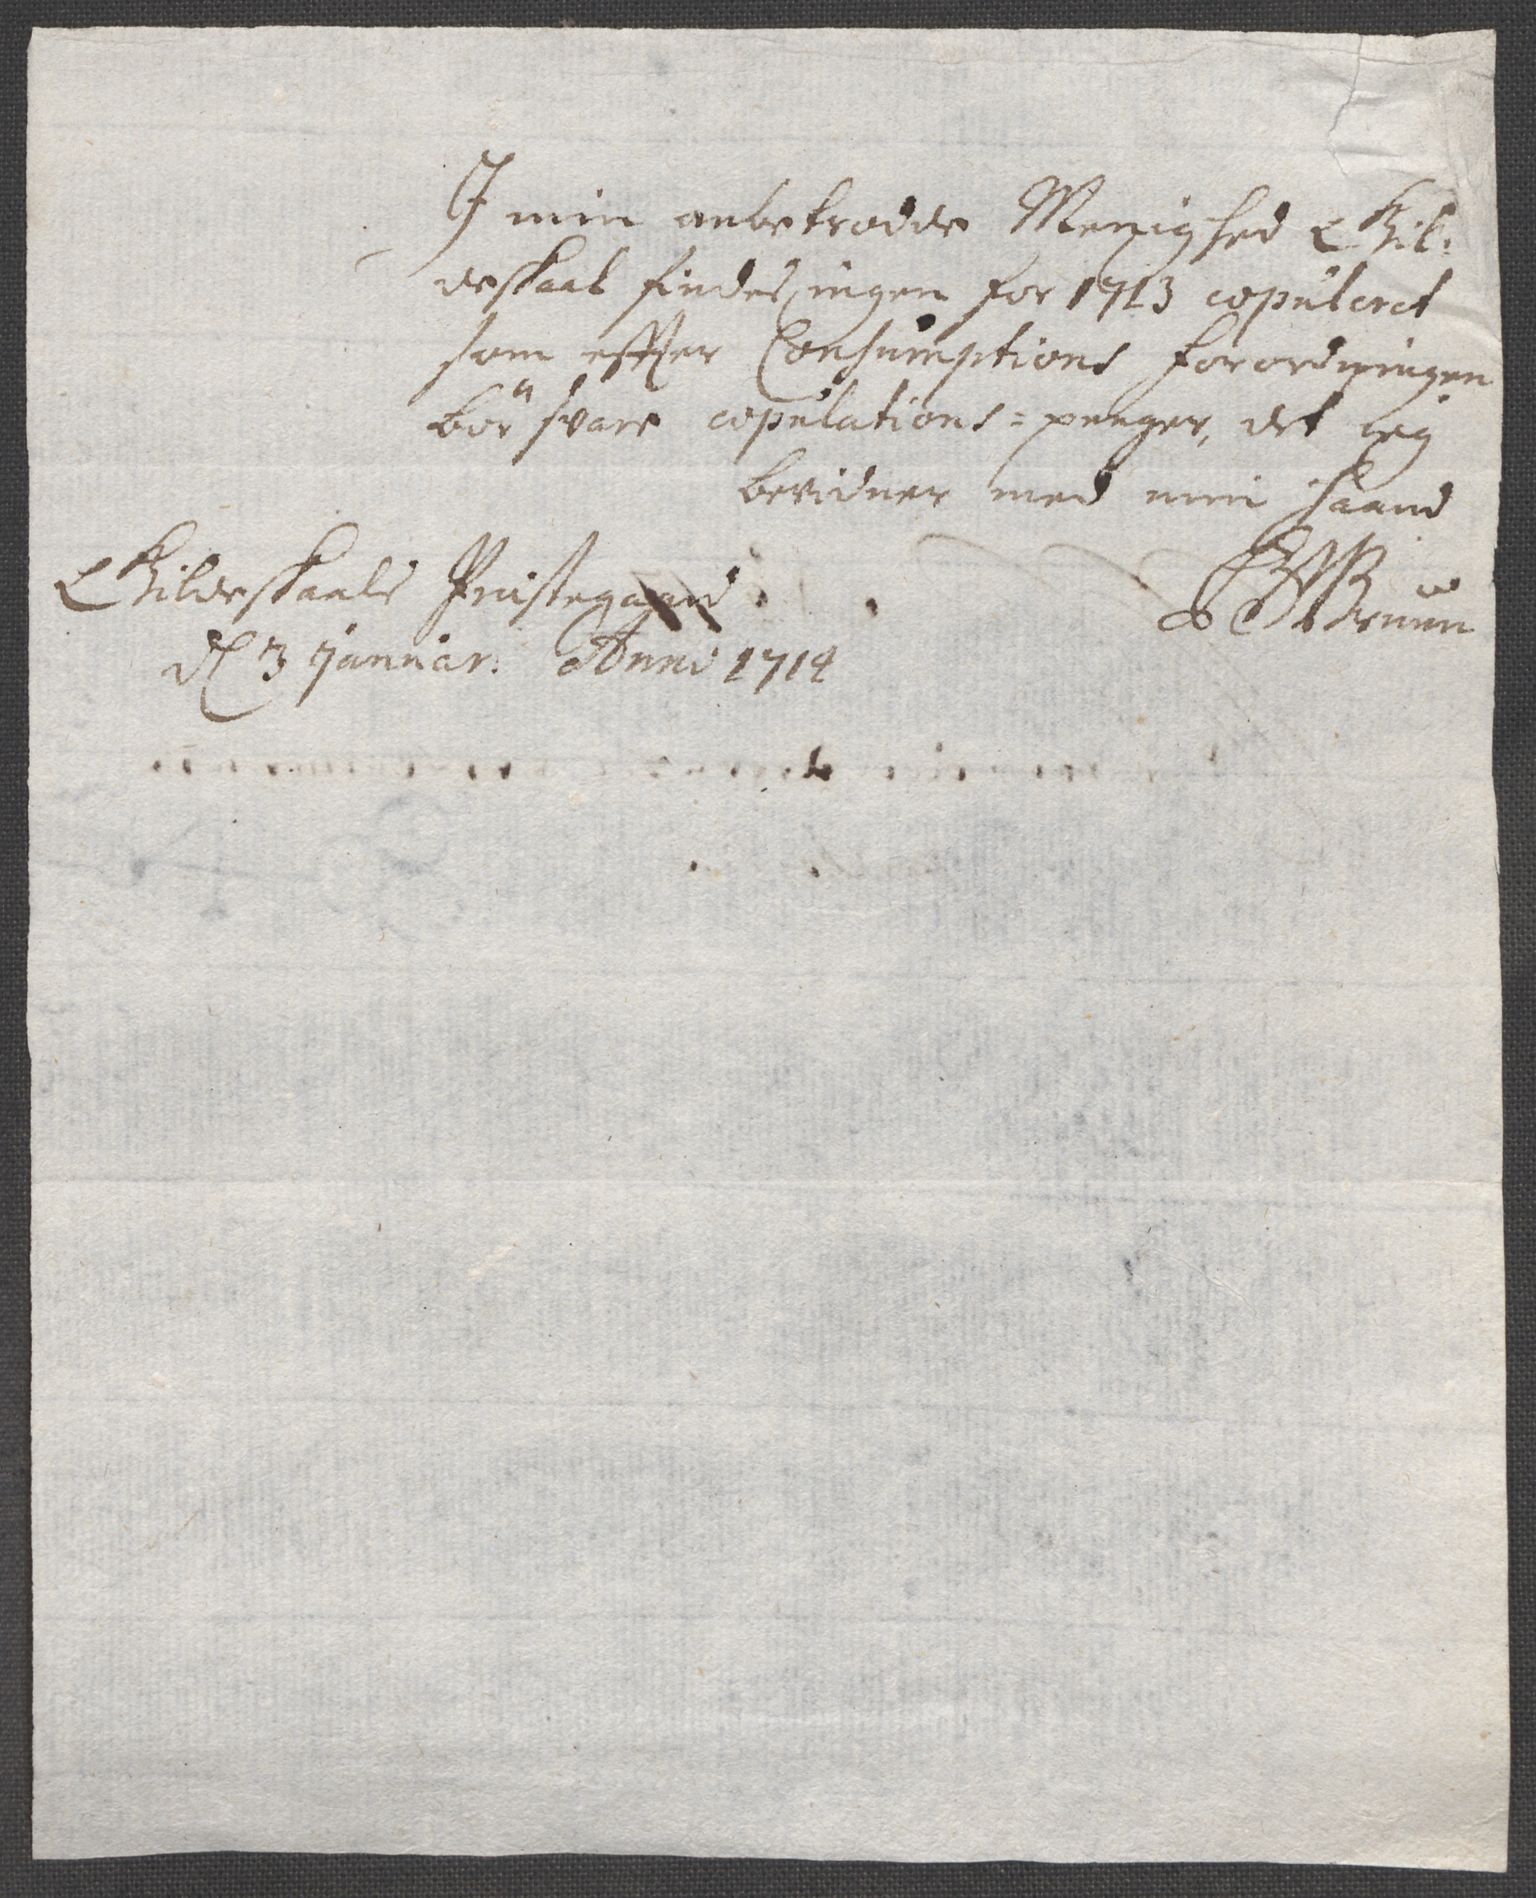 I min anbetrodde Menighed Gil:
deskaal findes ingen for 1713 copuleret
som effter Consumptions forordningen
bör svare copulations=penger, det ieg
bevidner med min haand
Gildeskaals Præstegaard
Bruun
d 3 januar: Anno 1714